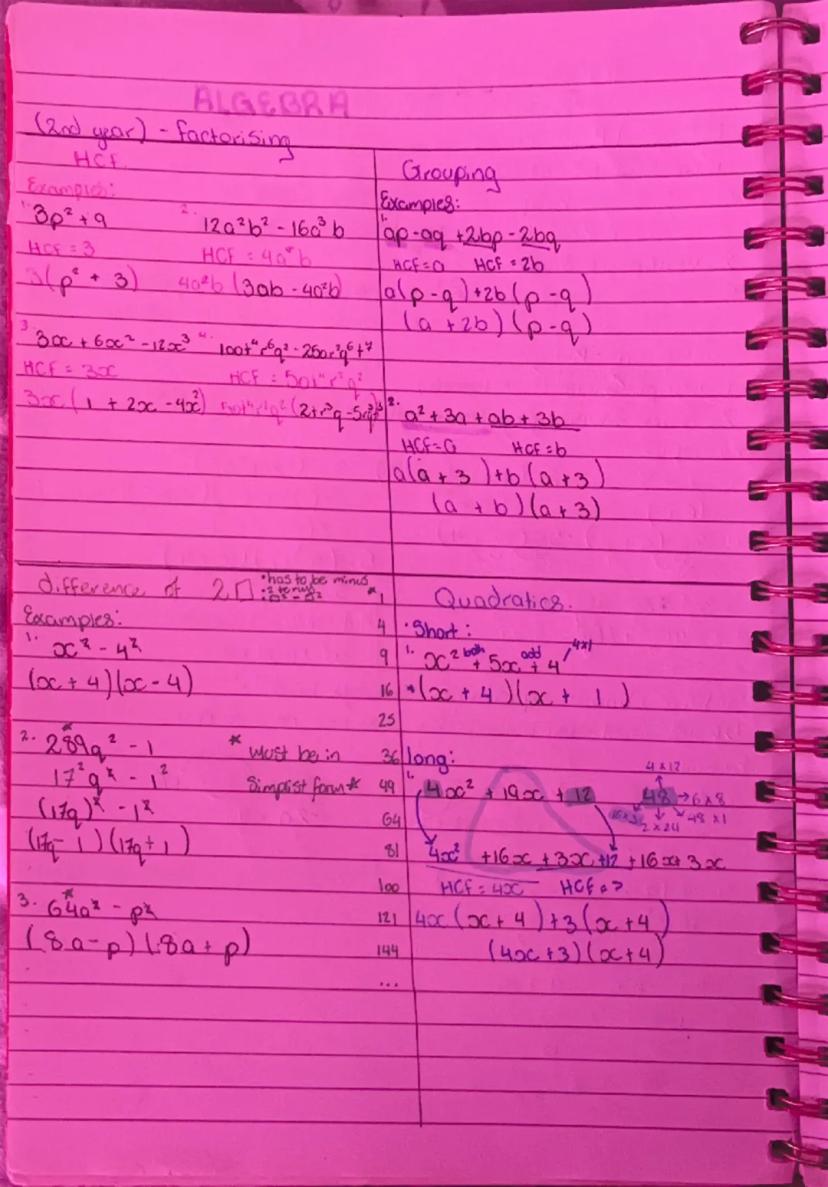 ALGEBRA
(2nd year) - factorising
HCF
Examples:
1. 3p² + 9
HCF = 3
3(p² + 3)
2. 12a²b² - 16a³b
HCF = 4a²b
4a²b (3ab - 4a²b)
3. 3x + 6x² - 12x³
HCF = 3x
3x (1 + 2x - 4x²)
4.
Grouping
Examples:
1. ap - aq + 2bp - 2bq
HCF = a HCF = 2b
a(p - q) + 2b(p - q)
(a + 2b)(p - q)
2. a² + 3a + ab + 3b
HCF = a HCF = b
a(a + 3) + b(a + 3)
(a + b)(a + 3)
difference of 2 □
• has to be minus
Examples:
1. x² - 4²
(x + 4)(x - 4)
2. 289q² - 1
17²q² - 1²
(17q)² - 1²
(17q - 1)(17q + 1)
* Must be in
simplist form *
3. 64a² - p²
(8a - p)(8a + p)
* 1
4
9
16
25
36
49
64
81
100
121
144
...
Quadratics.
• Short:
1. x² + 5x + 4
both add 4x1
* (x + 4)(x + 1)
long:
1. 4x² + 19x + 12
4 x 12
48 → 6 x 8
16x3 48 x 1
2 x 24
4x² + 16x + 3x + 12 + 16x + 3x
HCF = 4x HCF = 3
4x(x + 4) + 3(x + 4)
(4x + 3)(x + 4)